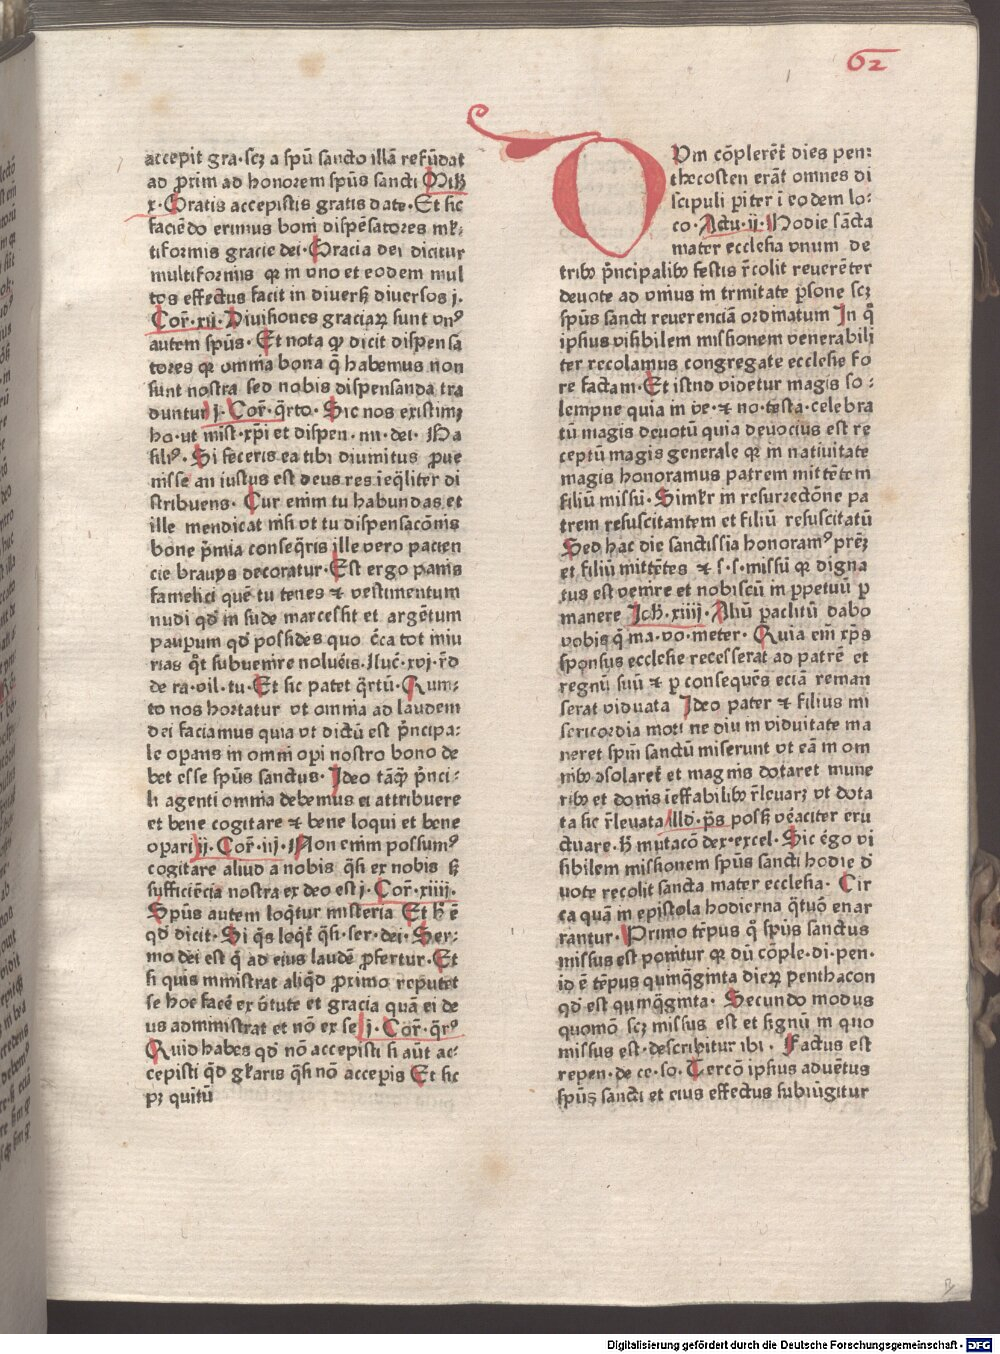 62
accepit gra·scꝫ a spū sancto illā refūdat
ad ꝓrim ad honorem spūs sancti Mtħ
x·Gratis accepistis gratis date·Et sic
faciēdo erimus boni dispēsatores ml̄·
tiformis gracie dei·Gracia dei dicitur
multiformis qꝛ in vno et eodem mul
tos effectus facit in diuersꝭ diuersos j·
Cor̄·xij·Diuisiones graciaꝝ sunt vnꝰ
autem spūs·Et nota ꝙ dicit dispensa
tores qꝛ omnia bona q̄ habemus non
sunt nostra sed nobis dispensanda tra
duntur j·Cor̄·q̄rto·Sic nos existimꝫ
ho·ut mist·xp̄i et dispen·mi·dei·Ma
filiꝰ·Si feceris ea tibi diuinitus ꝓue
nisse an iustus est deus res ieq̄liter di
stribuens·Cur enim tu habundas et
ille mendicat nisi vt tu dispensacōnis
bone p̄mia conseq̄ris ille vero pacien
cie brauys decoratur·Est ergo panis
famelici quē tu tenes ⁊ vestimentum
nudi qd̓ in fude marcessit et argētum
pauꝑum qd̓ possides quo c̄ca tot iniu
rias q̄t subuenire nolueis·lluc̄·xvj·r̄d
de ra·vil·tu·Et sic patet q̄rtū·Quin:
to nos hortatur vt omnia ad laudem
dei faciamus quia vt dictū est p̄ncipa:
le opans in omni opi nostro bono de
bet esse spūs sanctus·Ideo tāꝙ p̄nci:
li agenti omnia debemus ei attribuere
et bene cogitare ⁊ bene loqui et bene
opari ij·Cor̄·iij·Non enim possumꝰ
cogitare aliud a nobis q̄si ex nobis sꝫ
sufficiēcia nostra ex deo est j·Cor̄·xiiij·
Spūs autem loq̄tur misteria Et h̄ ē
qd̓ dicit·Si q̄s loq̄t q̄si·ser·dei·Ser:
mo dei est q̄ ad eius laudē ꝓfertur·Et
si quis ministrat aliq̄d ꝓrimo reputet
se hoc facē ex v̄tute et gracia quā ei de
us administrat et nō ex se j·Cor̄·q̄rꝰ
Quid habes qd̓ nō accepisti si aūt ac:
cepisti q̄d gl̄aris q̄si nō accepis Et sic
pꝫ quitū
Dm cōplerēt dies pen:
thecosten erāt omnes di
scipuli ꝑiter i eodem lo:
co·Actu·ij·Hodie sācta
mater ecclesia vnum de
tribꝰ p̄ncipalibꝰ festis r̄colit reuerēter
deuote ad vnius in trinitate ꝑsone scꝫ
spūs sancti reuerenciā ordinatum In q̄
ipsius visibilem missionem venerabili
ter recolamus congregate ecclesie fo
re factam·Et istud videtur magis so:
lempne quia in ve·⁊ no·testa·celebra
tū magis deuotū quia deuocius est re
ceptū magis generale qꝛ in natiuitate
magis honoramus patrem mittētem
filiū missū·Similr in resurrectōne pa
trem resuscitantem et filiū resuscitatū
Sed hac die sanctissīa honoramꝰ pr̄eꝫ
et filiū mittētes ⁊ s·s·missū qꝛ digna
tus est venire et nobiscū in ꝑpetuū ꝑ
manere Ioh̄·xiiij·Aliū paclitū dabo
vobis q̄ ma·vo·meter·Quia eni xp̄s
sponsus ecclesie recesserat ad patrē et
regnū suū ⁊ ꝑ consequēs eciā reman
serat viduata Ideo pater ⁊ filius mi
sericordia moti ne diu in viduitate ma
neret spm̄ sanctū miserunt vt eā in om
nibꝰ ↄsolaret̄ et magnis dotaret mune
ribꝰ et donis ieffabilibꝰ r̄leuarꝫ vt dota
ta sic r̄leuata illd̓·p̄s possꝫ ve̅aciter eru
ctuare·h̄ mutacō dex·excel·Sic ēgo vi
sibilem missionem spūs sancti hodie d̓
uote recolit sancta mater ecclesia·Cir
ca quā in epistola hodierna q̄tuō enar
rantur·Primo tr̄pus q̄ spūs sanctus
missus est ponitur qꝛ dū cōple·di·pen·
id ē tēpus quinq̄ginta dieꝝ penthacon
qd̓ est quinq̄ginta·Secundo modus
quomō scꝫ missus est et signū in quo
missus est·describitur ibi·Factus est
repen·de ce·so·Tercō ipsius aduētus
spūs sancti et eius effectus subiūgitur
Digitalisierung gefördert durch die Deutsche Forschungsgemeinschaft · DFG